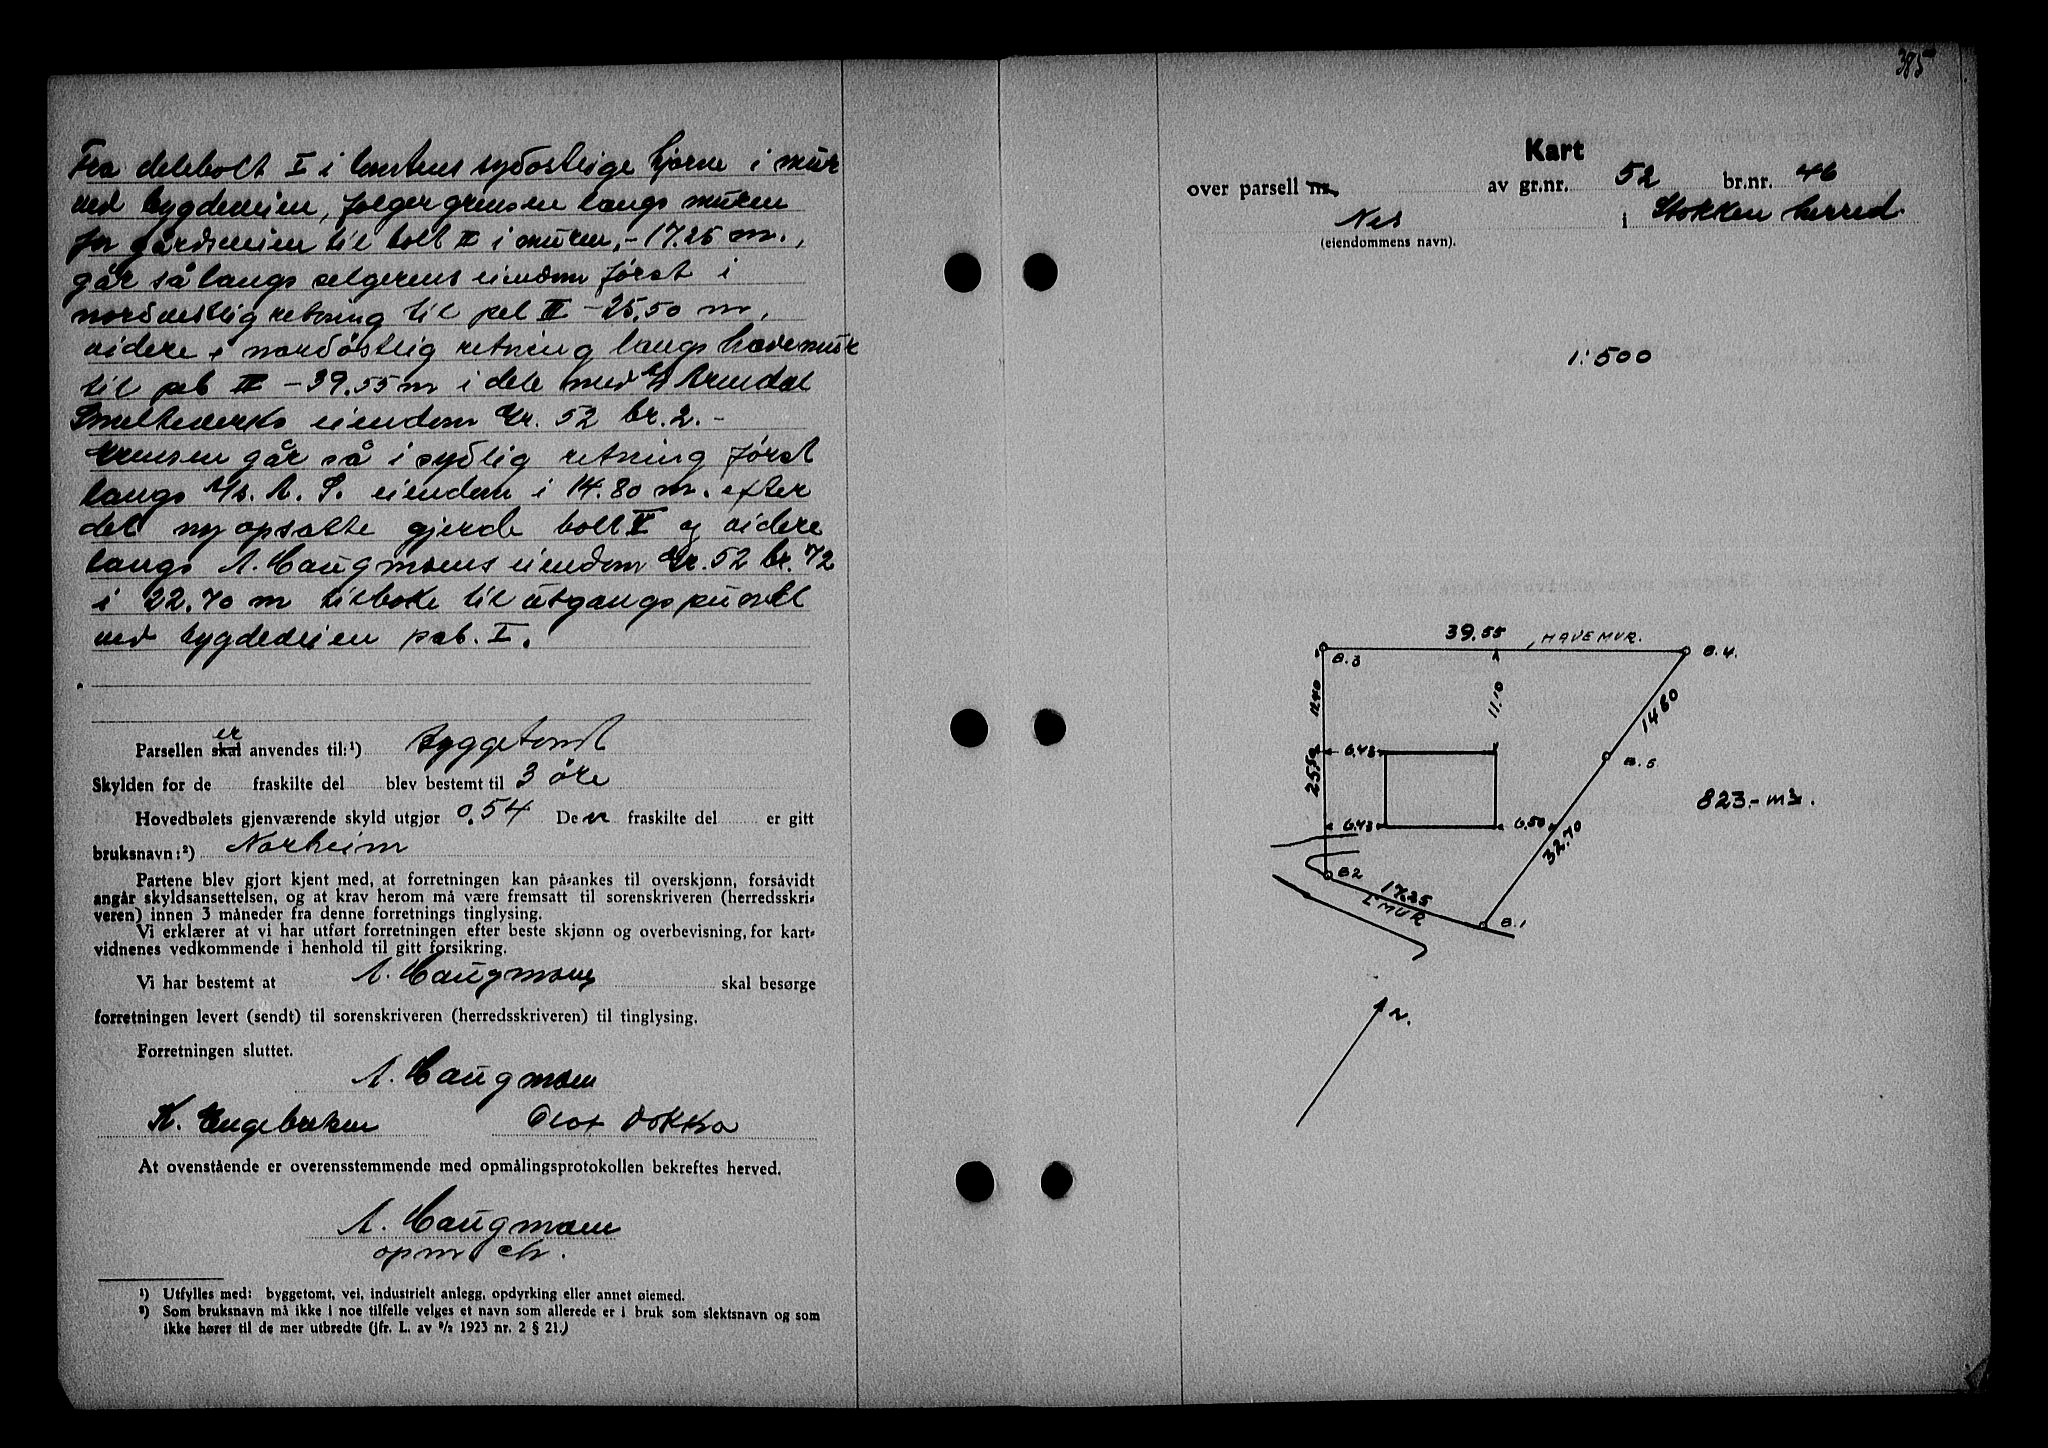 Fra delebolt I i tomtens sydøstlige hjørne i mur
ved bygdeveien, følger grensen langs muren
for gårdsveien til bolt II i muren, - 17.25 m.,
går så langs selgerens eiendom først i
nordvestlig retning til pel III - 25.50 m,
videre i nordøstlig retning langs havemur
til pel IV - 39.55 m i dele med A/S Arendal
Smelteverks eiendom Gr. 52 br. 2. -
Grensen går så i sydlig retning først
langs A/s. A. S. eiendom i 14.80 m. efter
det ny opsatte gjerde bolt V og videre
langs A. Haugmoens eiendom Gr. 52 br. 72
i 22.70 m tilbake til utgangspunkt
ved bygdeveien pab. I.
er
Parsellen skal anvendes til:¹) byggetomt
Skylden for de fraskilte del blev bestemt til 3 øre
Hovedbølets gjenværende skyld utgjør 0.54 Den fraskilte del er gitt
bruksnavn:²) Norheim
Partene blev gjort kjent med, at forretningen kan på-ankes til overskjønn, forsåvidt
angår skyldsansettelsen, og at krav herom må være fremsatt til sorenskriveren (herredsskri-
veren) innen 3 måneder fra denne forretnings tinglysing.
Vi erklærer at vi har utført forretningen efter beste skjønn og overbevisning, for kart-
vidnenes vedkommende i henhold til gitt forsikring.
Vi har bestemt at A. Haugmoen skal besørge
forretningen levert (sendt) til sorenskriveren (herredsskriveren) til tinglysing.
Forretningen sluttet.
A. Haugmoen
K. Engebretsen Olaf Dokka
At ovenstående er overensstemmende med opmålingsprotokollen bekreftes herved.
A. Haugmoen
opm ch.
¹) Utfylles med: byggetomt, vei, industrielt anlegg, opdyrking eller annet øiemed.
²) Som bruksnavn må ikke i noe tilfelle velges et navn som allerede er i bruk som slektsnavn og som
ikke hører til de mer utbredte (jfr. L. av ⁹/₂ 1923 nr. 2 § 21.)
385
Kart
over parsell nr. av gr.nr. 52 br.nr. 46
Nes i Stokken herred.
(eiendommens navn).
1:500
39.55 HAVEMUR.
B.3 B.4.
12.40 11.10 14.80
6.43 B.5.
25.50
823.- m2.
6.43 6.50
32.70
B2
17.25
MUR B.1
N.